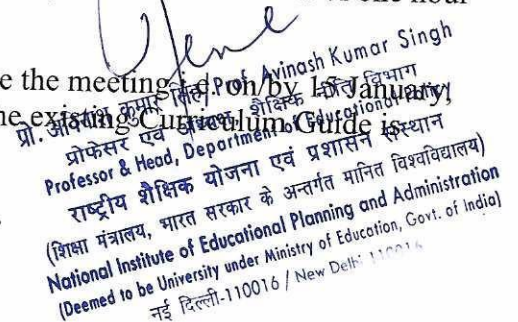 one hour
e the meeting i.e. on/by 15 January,
ne existing Curriculum Guide is
प्रो. अविनाश कुमार सिंह/Prof. Avinash Kumar Singh
प्रोफेसर एवं अध्यक्ष, शैक्षिक नीति विभाग
Professor & Head, Department of Educational Policy
राष्ट्रीय शैक्षिक योजना एवं प्रशासन संस्थान
(शिक्षा मंत्रालय, भारत सरकार के अन्तर्गत मानित विश्वविद्यालय)
National Institute of Educational Planning and Administration
(Deemed to be University under Ministry of Education, Govt. of India)
नई दिल्ली-110016 / New Delhi-110016